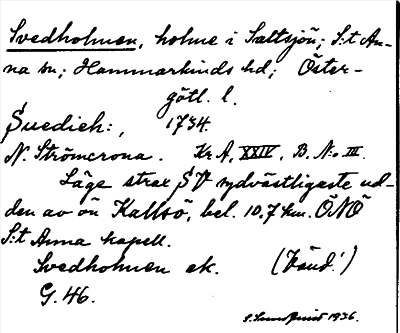 Svedholmen, holme i Saltsjön; S:t An-
na sn; Hammarkinds hd; Öster-
götl. l.
Suedich:, 1734.
N. Strömcrona. Kr A, XXIV, B. N:o III.
Läge strax SV sydvästligaste ud-
den av ön Kallsö, bel. 10.7 km. ÖNÖ
S:t Anna kapell.
Svedholmen ek. (Vänd!)
G. 46.
1936.